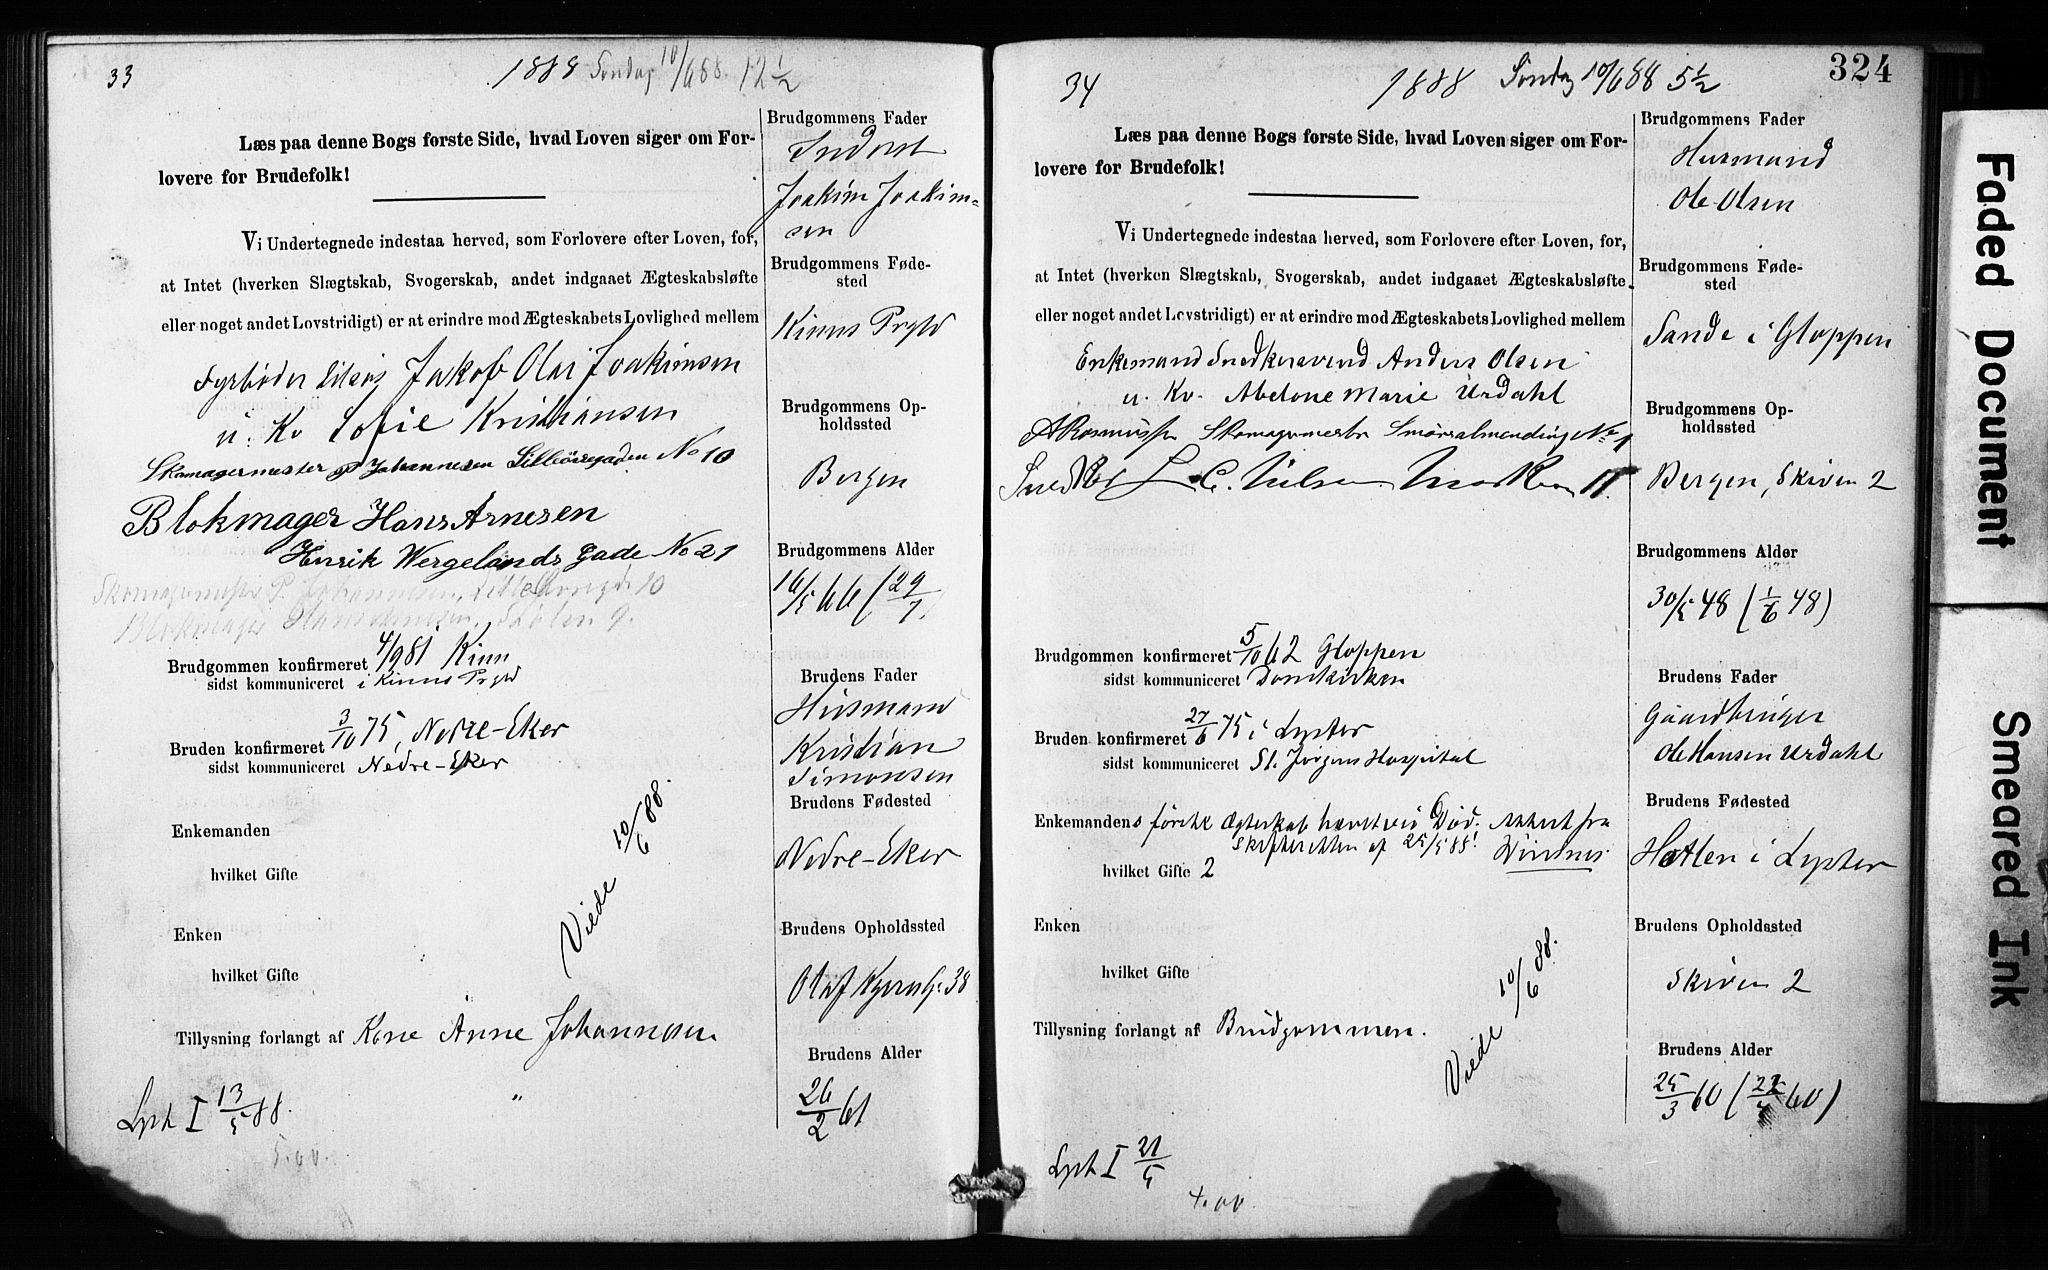 33
1888 Søndag 10/6 88. 12 ½
Læs paa denne Bogs første Side, hvad Loven siger om For-
lovere for Brudefolk!
Vi Undertegnede indestaa herved, som Forlovere efter Loven, for,
at Intet (hverken Slægtskab, Svogerskab, andet indgaaet Ægteskabsløfte
eller noget andet Lovstridigt) er at erindre mod Ægteskabets Lovlighed mellem
Fyrbøder Jakob Olai Joakimsen
u. Kv Sofie Kristiansen
Skomagermester P Johannesen Lilleövregaden No 10
Blokmager Hans Arnesen
Henrik Wergelands Gade No 21
Skomagermester P. Johannesen, 10
Blokmager Hans Arnesen, 9.
Brudgommen konfirmeret 4/9 81 Kinn
sidst kommuniceret i Kinns Prgld
Bruden konfirmeret 3/10 75, Nedre-Eker
sidst kommuniceret Nedre-Eker
Enkemanden
hvilket Gifte
Viede 10/6 88.
Enken
hvilket Gifte
Tillysning forlangt af Kone Anne Johannesen
Lyst I 13/5 88.
5.00.
Brudgommens Fader
Inderst
Joakim Joakim-
sen
Brudgommens Føde-
sted
Kinns Prgld
Brudgommens Op-
holdssted
Bergen
Brudgommens Alder
16/5 66 (29/7)
Brudens Fader
Husmand
Kristian
Simonsen
Brudens Fødested
Nedre-Eker
Brudens Opholdssted
Olaf Kyrresg. 38
Brudens Alder
26/2 61
34
1888 Søndag 10/6 88 5½
324
Læs paa denne Bogs første Side, hvad Loven siger om For-
lovere for Brudefolk!
Vi Undertegnede indestaa herved, som Forlovere efter Loven, for,
at Intet (hverken Slægtskab, Svogerskab, andet indgaaet Ægteskabsløfte
eller noget andet Lovstridigt) er at erindre mod Ægteskabets Lovlighed mellem
Enkemand Snedkersvend Anders Olsen
u. Kv. Abelone Marie Urdahl
A Rasmussen Skomagermester Smörsalmending No 1
Snedker L. C. Nilsen Marken 11.
Brudgommen konfirmeret 5/10 62 Gloppen
sidst kommuniceret Domkirken
Bruden konfirmeret 27/6 75 i Lyster
sidst kommuniceret St. Jørgens Hospital
Enkemandens første Ægteskab hævet ved Død. Attest fra
Skifteretten af 25/5 88!
hvilket Gifte 2
Enken
hvilket Gifte
Viede 10/6 88.
Tillysning forlangt af Brudgommen.
Lyst I 21/5
4.00
Brudgommens Fader
Husmand
Ole Olsen
Brudgommens Føde-
sted
Sande i Gloppen
Brudgommens Op-
holdssted
Bergen, Skiven 2
Brudgommens Alder
30/5 48 (1/6 48)
Brudens Fader
Gaardbruger
Ole Hansen Urdahl
Brudens Fødested
i Lyster
Brudens Opholdssted
Skiven 2
Brudens Alder
25/3 60
Faded Document
Smeared Ink